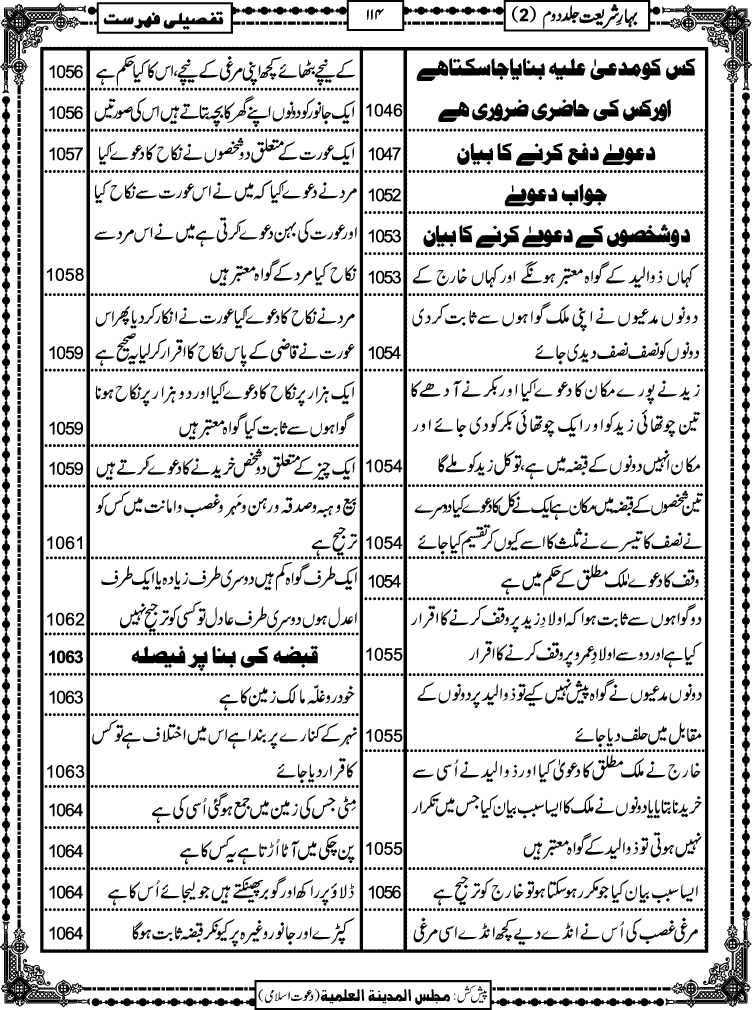 بہارِ شریعت جلد دوم (2)
۱۱۴
تفصیلی فہرست
کس کو مدعیٰ علیہ بنایا جاسکتا ہے
اور کس کی حاضری ضروری ہے 1046
دعوے دفع کرنے کا بیان 1047
جواب دعوے 1052
دو شخصوں کے دعوے کرنے کا بیان 1053
کہاں ذوالید کے گواہ معتبر ہونگے اور کہاں خارج کے 1053
دونوں مدعیوں نے اپنی ملک گواہوں سے ثابت کردی
دونوں کو نصف نصف دیدی جائے 1054
زید نے پورے مکان کا دعوے کیا اور بکر نے آدھے کا
تین چوتھائی زید کو اور ایک چوتھائی بکر کو دی جائے اور
مکان انہیں دونوں کے قبضہ میں ہے، تو کل زید کو ملے گا 1054
تین شخصوں کے قبضہ میں مکان ہے ایک نے کل کا دعوے کیا دوسرے
نے نصف کا تیسرے نے ثلث کا اسے کیوں کر تقسیم کیا جائے 1054
وقف کا دعوے ملک مطلق کے حکم میں ہے 1054
دو گواہوں سے ثابت ہوا کہ اولادِ زید پر وقف کرنے کا اقرار
کیا ہے اور دو سے اولادِ عمرو پر وقف کرنے کا اقرار 1055
دونوں مدعیوں نے گواہ پیش نہیں کیے تو ذوالید پر دونوں کے
مقابل میں حلف دیا جائے 1055
خارج نے ملک مطلق کا دعویٰ کیا اور ذوالید نے اُسی سے
خریدنا بتایا یا دونوں نے ملک کا ایسا سبب بیان کیا جس میں تکرار
نہیں ہوتی تو ذوالید کے گواہ معتبر ہیں 1055
ایسا سبب بیان کیا جو مکرر ہوسکتا ہو تو خارج کو ترجیح ہے 1056
مرغی غصب کی اُس نے انڈے دیے کچھ انڈے اسی مرغی
کے نیچے بٹھائے کچھ اپنی مرغی کے نیچے، اس کا کیا حکم ہے 1056
ایک جانور کو دونوں اپنے گھر کا بچہ بتاتے ہیں اس کی صورتیں 1056
ایک عورت کے متعلق دو شخصوں نے نکاح کا دعوے کیا 1057
مرد نے دعوے کیا کہ میں نے اس عورت سے نکاح کیا
اور عورت کی بہن دعوے کرتی ہے میں نے اس مرد سے
نکاح کیا مرد کے گواہ معتبر ہیں 1058
مرد نے نکاح کا دعوے کیا عورت نے انکار کردیا پھر اس
عورت نے قاضی کے پاس نکاح کا اقرار کرلیا یہ صحیح ہے 1059
ایک ہزار پر نکاح کا دعوے کیا اور دو ہزار پر نکاح ہونا
گواہوں سے ثابت کیا گواہ معتبر ہیں 1059
ایک چیز کے متعلق دو شخص خریدنے کا دعوے کرتے ہیں 1059
بیع و ہبہ و صدقہ و رہن و مَہر و غصب و امانت میں کس کو
ترجیح ہے 1061
ایک طرف گواہ کم ہیں دوسری طرف زیادہ یا ایک طرف
اعدل ہوں دوسری طرف عادل تو کسی کو ترجیح نہیں 1062
قبضہ کی بنا پر فیصلہ 1063
خودرو غلّہ مالک زمین کا ہے 1063
نہر کے کنارے پر بندا ہے اس میں اختلاف ہے تو کس
کا قرار دیا جائے 1063
مٹی جس کی زمین میں جمع ہوگئی اُسی کی ہے 1064
پن چکی میں آٹا اُڑتا ہے یہ کس کا ہے 1064
ڈلاؤ پر راکھ اور گوبر پھینکتے ہیں جو لیجائے اُس کا ہے 1064
کپڑے اور جانور وغیرہ پر کیونکر قبضہ ثابت ہوگا 1064
پیش کش: مجلس المدینۃ العلمیۃ (دعوت اسلامی)